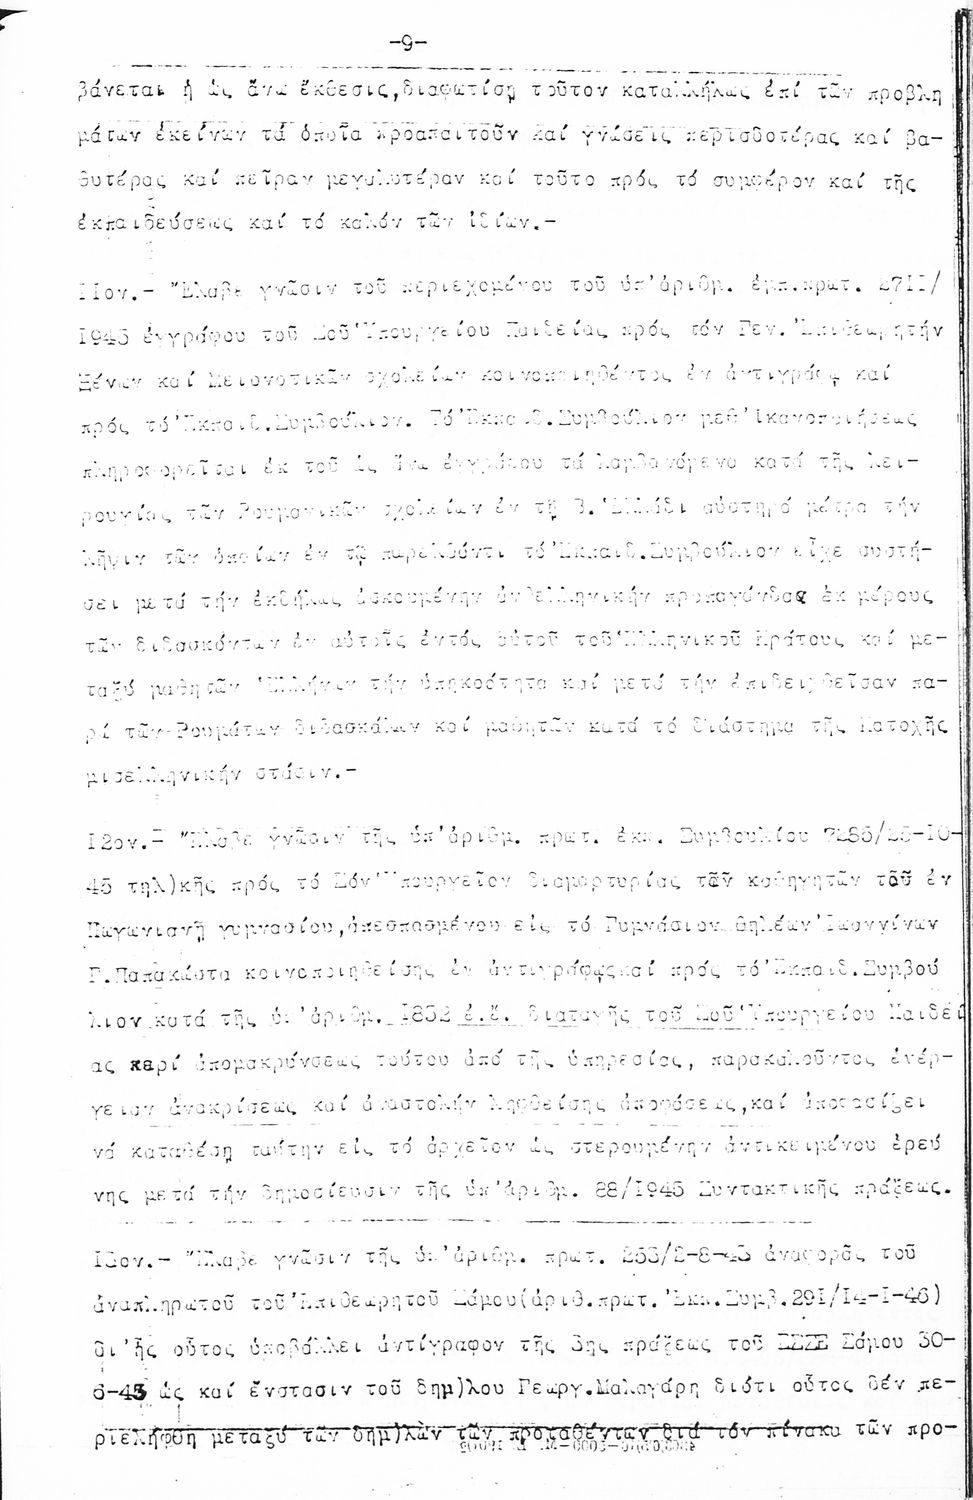 -9-
βάνεται ἡ ὡς ἄνω ἔκθεσις,διαφωτίσῃ τοῦτον καταλλήλως ἐπί τῶν προβλη
μάτων ἐκείνων τά ὁποῖα προαπαιτοῦν καί γνώσεις περισσοτέρας καί βα-
θυτέρας καί πεῖραν μεγαλυτέραν καί τοῦτο πρός τό συμφέρον καί τῆς
ἐκπαιδεύσεως καί τό καλόν τῶν ἰδίων.-
ΙΙον.- Ἔλαβε γνῶσιν τοῦ περιεχομένου τοῦ ὑπ'ἀριθμ. ἐμπ.πρωτ. 2711/
1945 ἐγγράφου τοῦ Σοῦ Ὑπουργείου Παιδείας πρός τόν Γεν.Ἐπιθεωρητήν
Ξένων καί Μειονοτικῶν σχολείων κοινοποιηθέντος ἐν ἀντιγράφῳ καί
πρός τό Ἐκπαιδ.Συμβούλιον. Τό Ἐκπαιδ.Συμβούλιον μεθ'ἱκανοποιήσεως
πληροφορεῖται ἐκ τοῦ ὡς ἄνω ἐγγράφου τά λαμβανόμενα κατά τῆς λει-
ρουγίας τῶν Ρουμανικῶν σχολείων ἐν τῇ Β.Ἑλλάδι αὐστηρά μέτρα τήν
λῆψιν τῶν ὁποίων ἐν τῷ παρελθόντι τό Ἐκπαιδ.Συμβούλιον εἶχε συστή-
σει μετά τήν ἐκδήλως ἀσκουμένην ἀνθελληνικήν προπαγάνδας ἐκ μέρους
τῶν διδασκόντων ἐν αὐτοῖς ἐντός αὐτοῦ τοῦ Ἑλληνικοῦ Κράτους καί με-
ταξύ μαθητῶν Ἑλλήνων τήν ὑπηκοότητα καί μετά τήν ἐπιδειχθεῖσαν πα-
ρά τῶν Ρουμάνων διδασκάλων καί μαθητῶν κατά τό διάστημα τῆς Κατοχῆς
μισελληνικήν στάσιν.-
Ι2ον.- Ἔλαβε γνῶσιν τῆς ὑπ'ἀριθμ. πρωτ. ἐκπ. Συμβουλίου 7285/25-10-
45 τηλ)κῆς πρός τό Σόν Ὑπουργεῖον διαμαρτυρίας τῶν καθηγητῶν τοῦ ἐν
Πωγωνιανῇ γυμνασίου,ἀπεσπασμένου εἰς τό Γυμνάσιον θηλέων Ἰωαννίνων
Γ.Παπακώστα κοινοποιηθείσης ἐν ἀντιγράφῳ καί πρός τό Ἐκπαιδ.Συμβού
λιον κατά τῆς ὑπ'ἀριθμ. 1852 ἐ.ἔ. διαταγῆς τοῦ Σοῦ Ὑπουργείου Παιδεί
ας περί ἀπομακρύνσεως τούτου ἀπό τῆς ὑπηρεσίας, παρακαλοῦντος ἐνέρ-
γειαν ἀνακρίσεως καί ἀναστολήν ληφθείσης ἀποφάσεως,καί ἀποφασίζει
νά καταθέσῃ ταύτην εἰς τό ἀρχεῖον ὡς στερουμένην ἀντικειμένου ἐρεύ
νης μετά τήν δημοσίευσιν τῆς ὑπ'ἀριθμ. 88/1945 Συντακτικῆς πράξεως.
Ι3ον.- Ἔλαβε γνῶσιν τῆς ὑπ'ἀριθμ. πρωτ. 253/2-8-45 ἀναφορᾶς τοῦ
ἀναπληρωτοῦ τοῦ Ἐπιθεωρητοῦ Σάμου(ἀριθ.πρωτ.Ἐκπ.Συμβ.291/14-1-46)
δι'ἧς οὗτος ὑποβάλλει ἀντίγραφον τῆς 3ης πράξεως τοῦ ΕΣΣΕ Σάμου 30-
6-45 ὡς καί ἔνστασιν τοῦ δημ)λου Γεωργ.Μαλαγάρη διότι οὗτος δέν πε-
ριελήφθη μεταξύ τῶν δημ)λων τῶν προταθέντων διά τόν πίνακα τῶν προ-